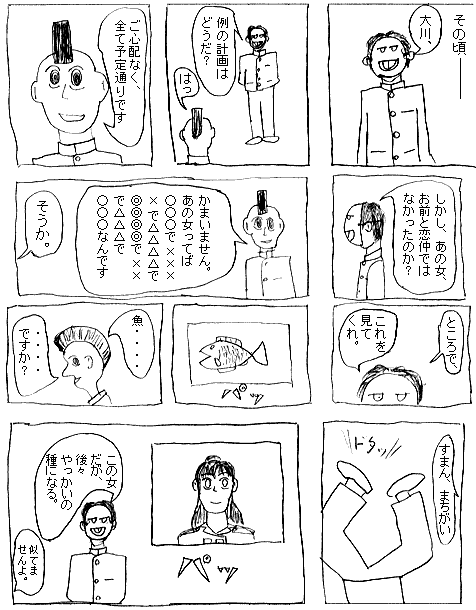 その頃、――
大川、
例の計画は
どうだ?
はっ
ご心配なく、
全て予定通りです
しかし、あの女、
お前と恋仲では
なかったのか?
かまいません。
あの女ってば
○○○で××
×で△△△△
◎◎◎◎で××
で△△△で
○○○なんです
そうか。
ところで、
これを
見て
くれ。
魚・・・・
・・・・
ですか?
ドタッ
すまん、まちがい
この女
だが、
後々
やっかいの
種になる。
似てま
せんよ。